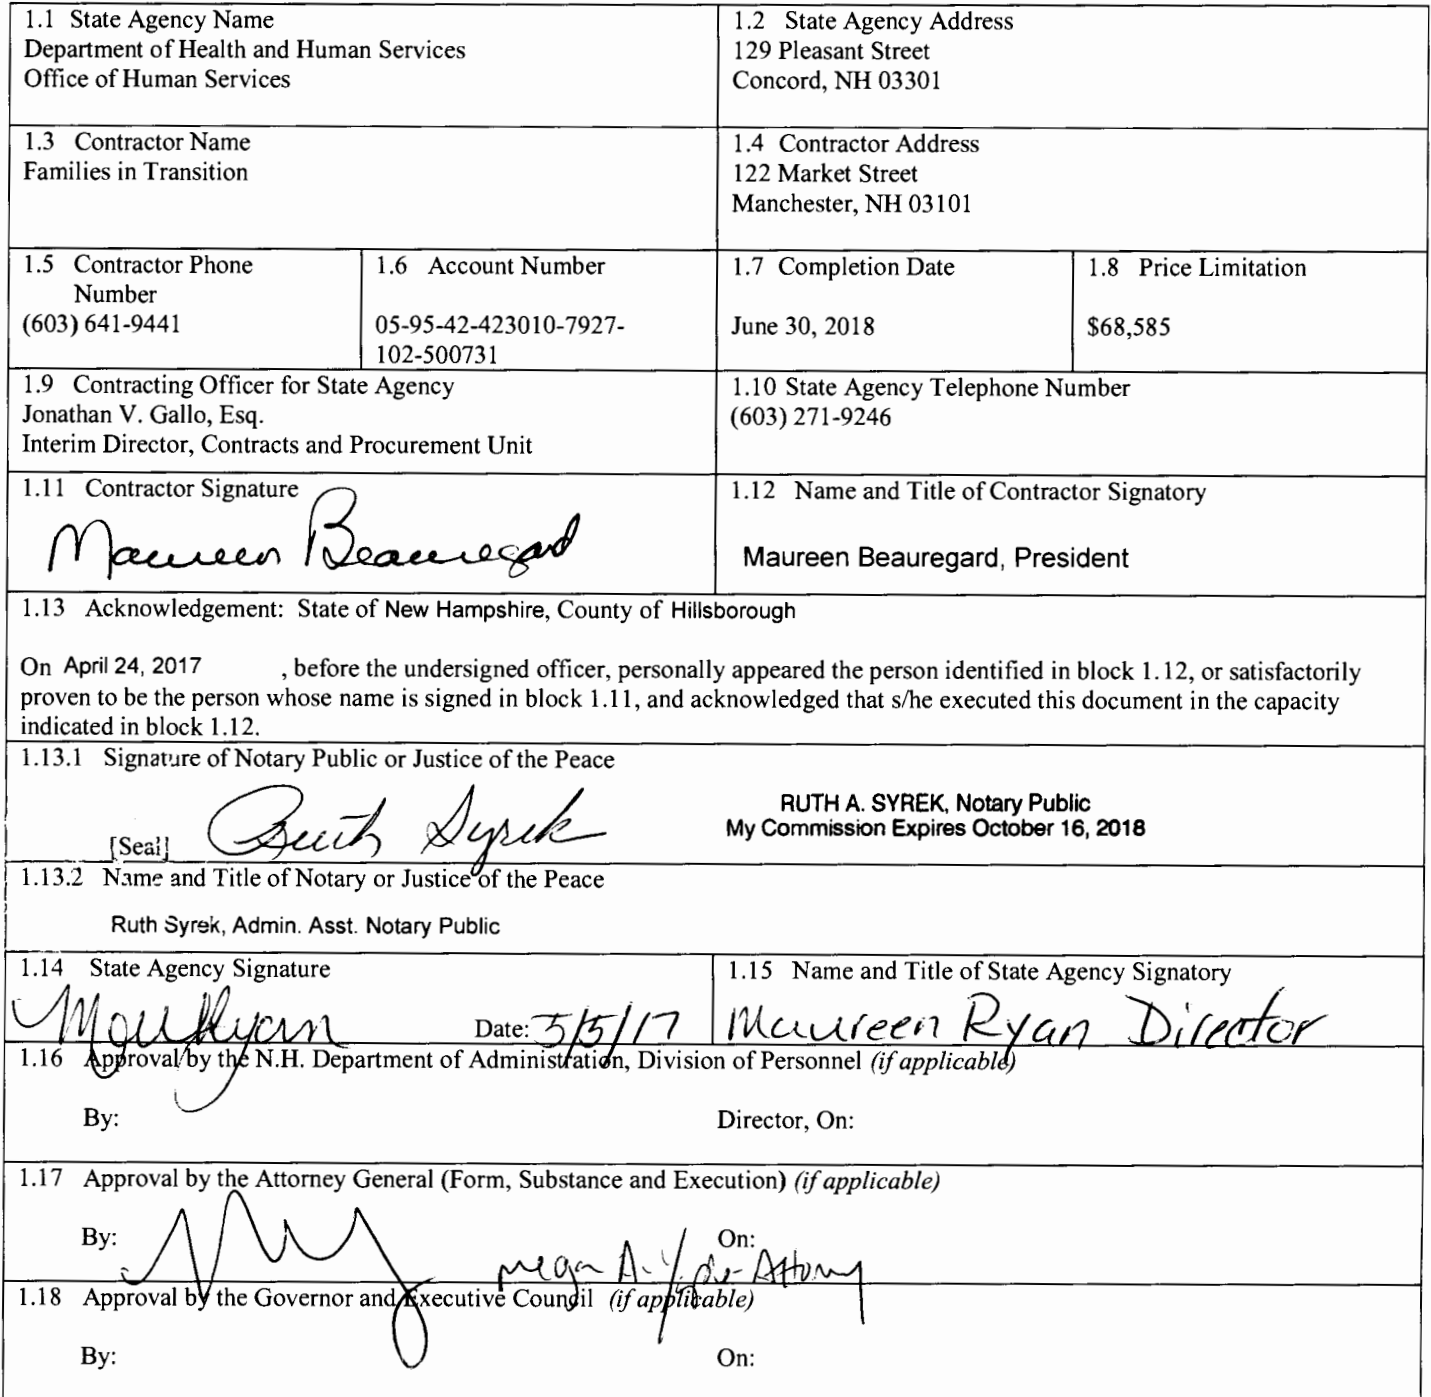 1.1 State Agency Name
Department of Health and Human Services
Office of Human Services
1.2 State Agency Address
129 Pleasant Street
Concord, NH 03301
1.3 Contractor Name
Families in Transition
1.4 Contractor Address
122 Market Street
Manchester, NH 03101
1.5 Contractor Phone
Number
(603) 641-9441
1.6 Account Number
05-95-42-423010-7927-
102-500731
1.7 Completion Date
June 30, 2018
1.8 Price Limitation
$68,585
1.9 Contracting Officer for State Agency
Jonathan V. Gallo, Esq.
Interim Director, Contracts and Procurement Unit
1.10 State Agency Telephone Number
(603) 271-9246
1.11 Contractor Signature
Maureen Beauregard
1.12 Name and Title of Contractor Signatory
Maureen Beauregard, President
1.13 Acknowledgement: State of New Hampshire, County of Hillsborough
On April 24, 2017 , before the undersigned officer, personally appeared the person identified in block 1.12, or satisfactorily
proven to be the person whose name is signed in block 1.11, and acknowledged that s/he executed this document in the capacity
indicated in block 1.12.
1.13.1 Signature of Notary Public or Justice of the Peace
[Seal] Ruth Syrek
RUTH A. SYREK, Notary Public
My Commission Expires October 16, 2018
1.13.2 Name and Title of Notary or Justice of the Peace
Ruth Syrek, Admin. Asst. Notary Public
1.14 State Agency Signature
Date: 5/5/17
1.15 Name and Title of State Agency Signatory
Maureen Ryan Director
1.16 Approval by the N.H. Department of Administration, Division of Personnel (if applicable)
By:
Director, On:
1.17 Approval by the Attorney General (Form, Substance and Execution) (if applicable)
By:
On:
Attorney
1.18 Approval by the Governor and Executive Council (if applicable)
By:
On: